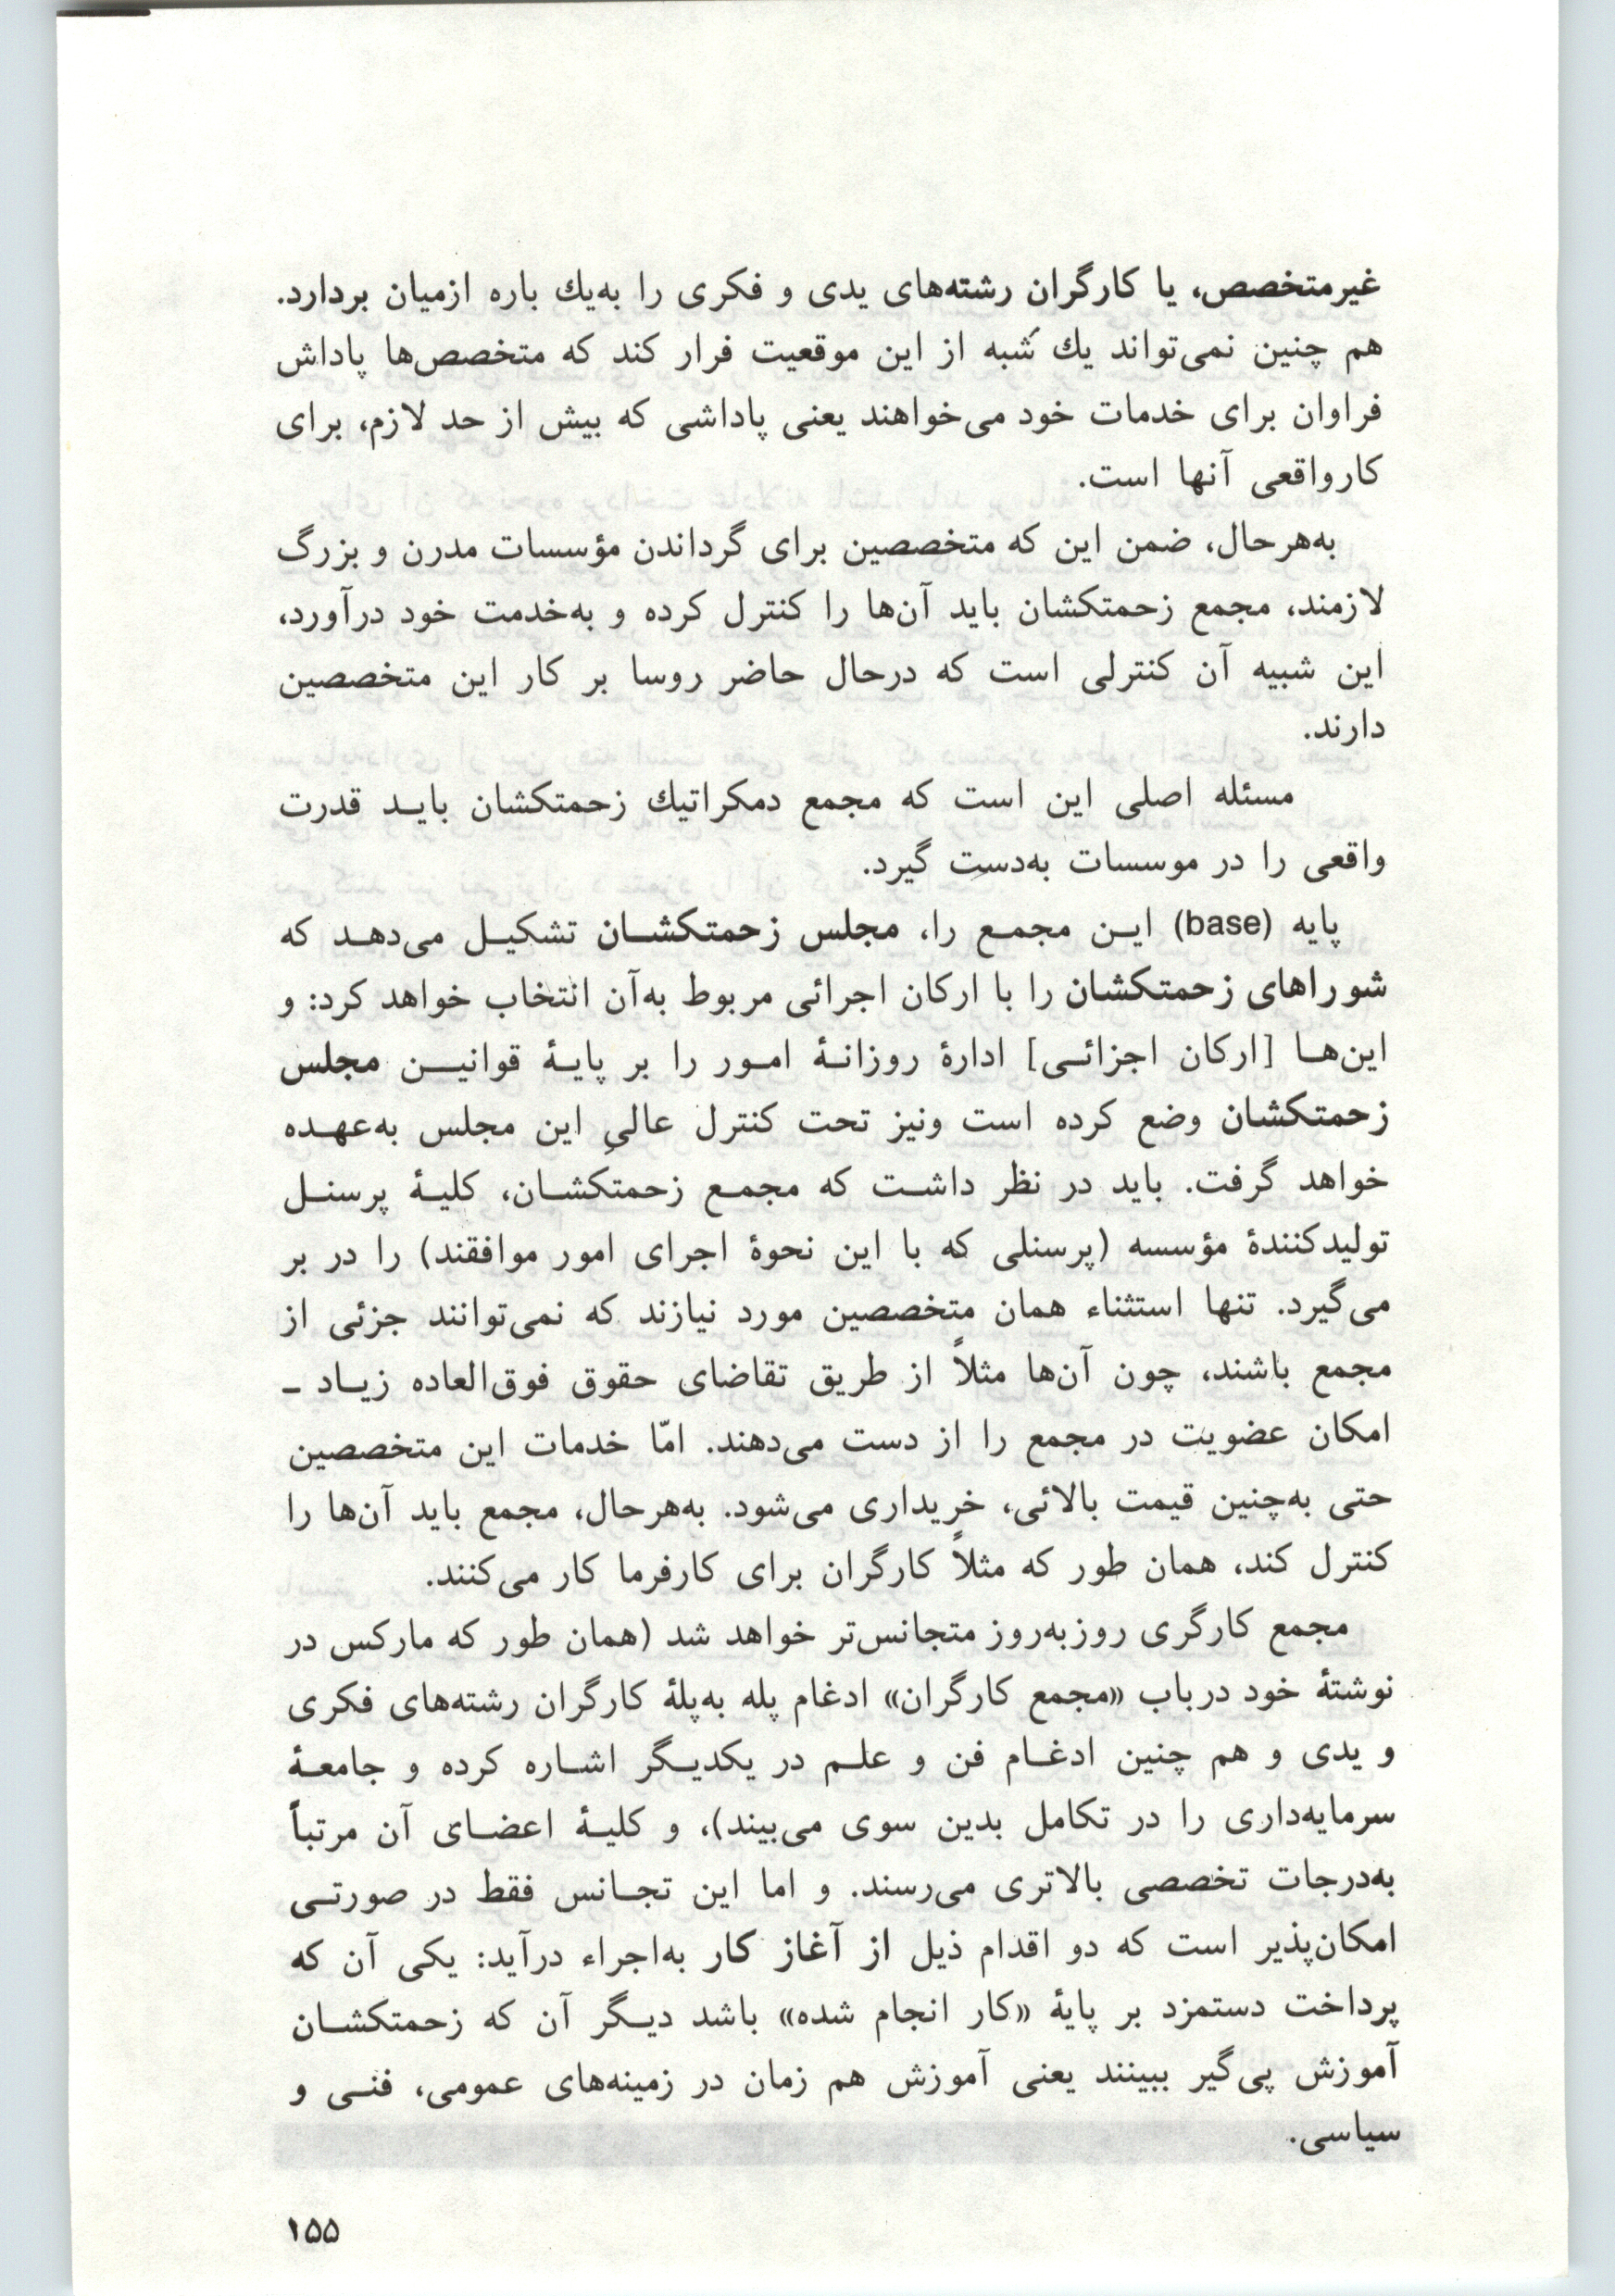 غیرمتخصص، یا کارگران رشته‌های یدی و فکری را به‌یك باره ازمیان بردارد.
هم چنین نمی‌تواند یك شَبه از این موقعیت فرار کند که متخصص‌ها پاداش
فراوان برای خدمات خود می‌خواهند یعنی پاداشی که بیش از حد لازم، برای
کارواقعی آنها است.
به‌هرحال، ضمن این که متخصصین برای گرداندن مؤسسات مدرن و بزرگ
لازمند، مجمع زحمتکشان باید آن‌ها را کنترل کرده و به‌خدمت خود درآورد،
این شبیه آن کنترلی است که درحال حاضر روسا بر کار این متخصصین
دارند.
مسئله اصلی این است که مجمع دمکراتیك زحمتکشان بایـد قدرت
واقعی را در موسسات به‌دست گیرد.
پایه (base) ایـن مجمـع را، مجلس زحمتکشـان تشکیـل می‌دهـد که
شوراهای زحمتکشان را با ارکان اجرائی مربوط به‌آن انتخاب خواهد کرد: و
این‌هـا [ارکان اجزائـی] ادارهٔ روزانـهٔ امـور را بر پایـهٔ قوانیـن مجلس
زحمتکشان وضع کرده است ونیز تحت کنترل عالیِ این مجلس به‌عهـده
خواهد گرفت. باید در نظر داشـت که مجمـع زحمتکشـان، کلیـهٔ پرسنـل
تولیدکنندهٔ مؤسسه (پرسنلی که با این نحوهٔ اجرای امور موافقند) را در بر
می‌گیرد. تنها استثناء همان متخصصین مورد نیازند که نمی‌توانند جزئی از
مجمع باشند، چون آن‌ها مثلاً از طریق تقاضای حقوق فوق‌العاده زیـاد ـ
امکان عضویت در مجمع را از دست می‌دهند. امّا خدمات این متخصصین
حتی به‌چنین قیمت بالائی، خریداری می‌شود. به‌هرحال، مجمع باید آن‌ها را
کنترل کند، همان طور که مثلاً کارگران برای کارفرما کار می‌کنند.
مجمع کارگری روزبه‌روز متجانس‌تر خواهد شد (همان طور که مارکس در
نوشتهٔ خود درباب «مجمع کارگران» ادغام پله به‌پلهٔ کارگران رشته‌های فکری
و یدی و هم چنین ادغـام فن و علـم در یکدیـگر اشـاره کرده و جامعـهٔ
سرمایه‌داری را در تکامل بدین سوی می‌بیند)، و کلیـهٔ اعضـای آن مرتباً
به‌درجات تخصصی بالاتری می‌رسند. و اما این تجـانس فقط در صورتـی
امکان‌پذیر است که دو اقدام ذیل از آغاز کار به‌اجراء درآید: یکی آن که
پرداخت دستمزد بر پایهٔ «کار انجام شده» باشد دیـگر آن که زحمتکشـان
آموزش پی‌گیر ببینند یعنی آموزش هم زمان در زمینه‌های عمومی، فنـی و
سیاسی.
۱۵۵